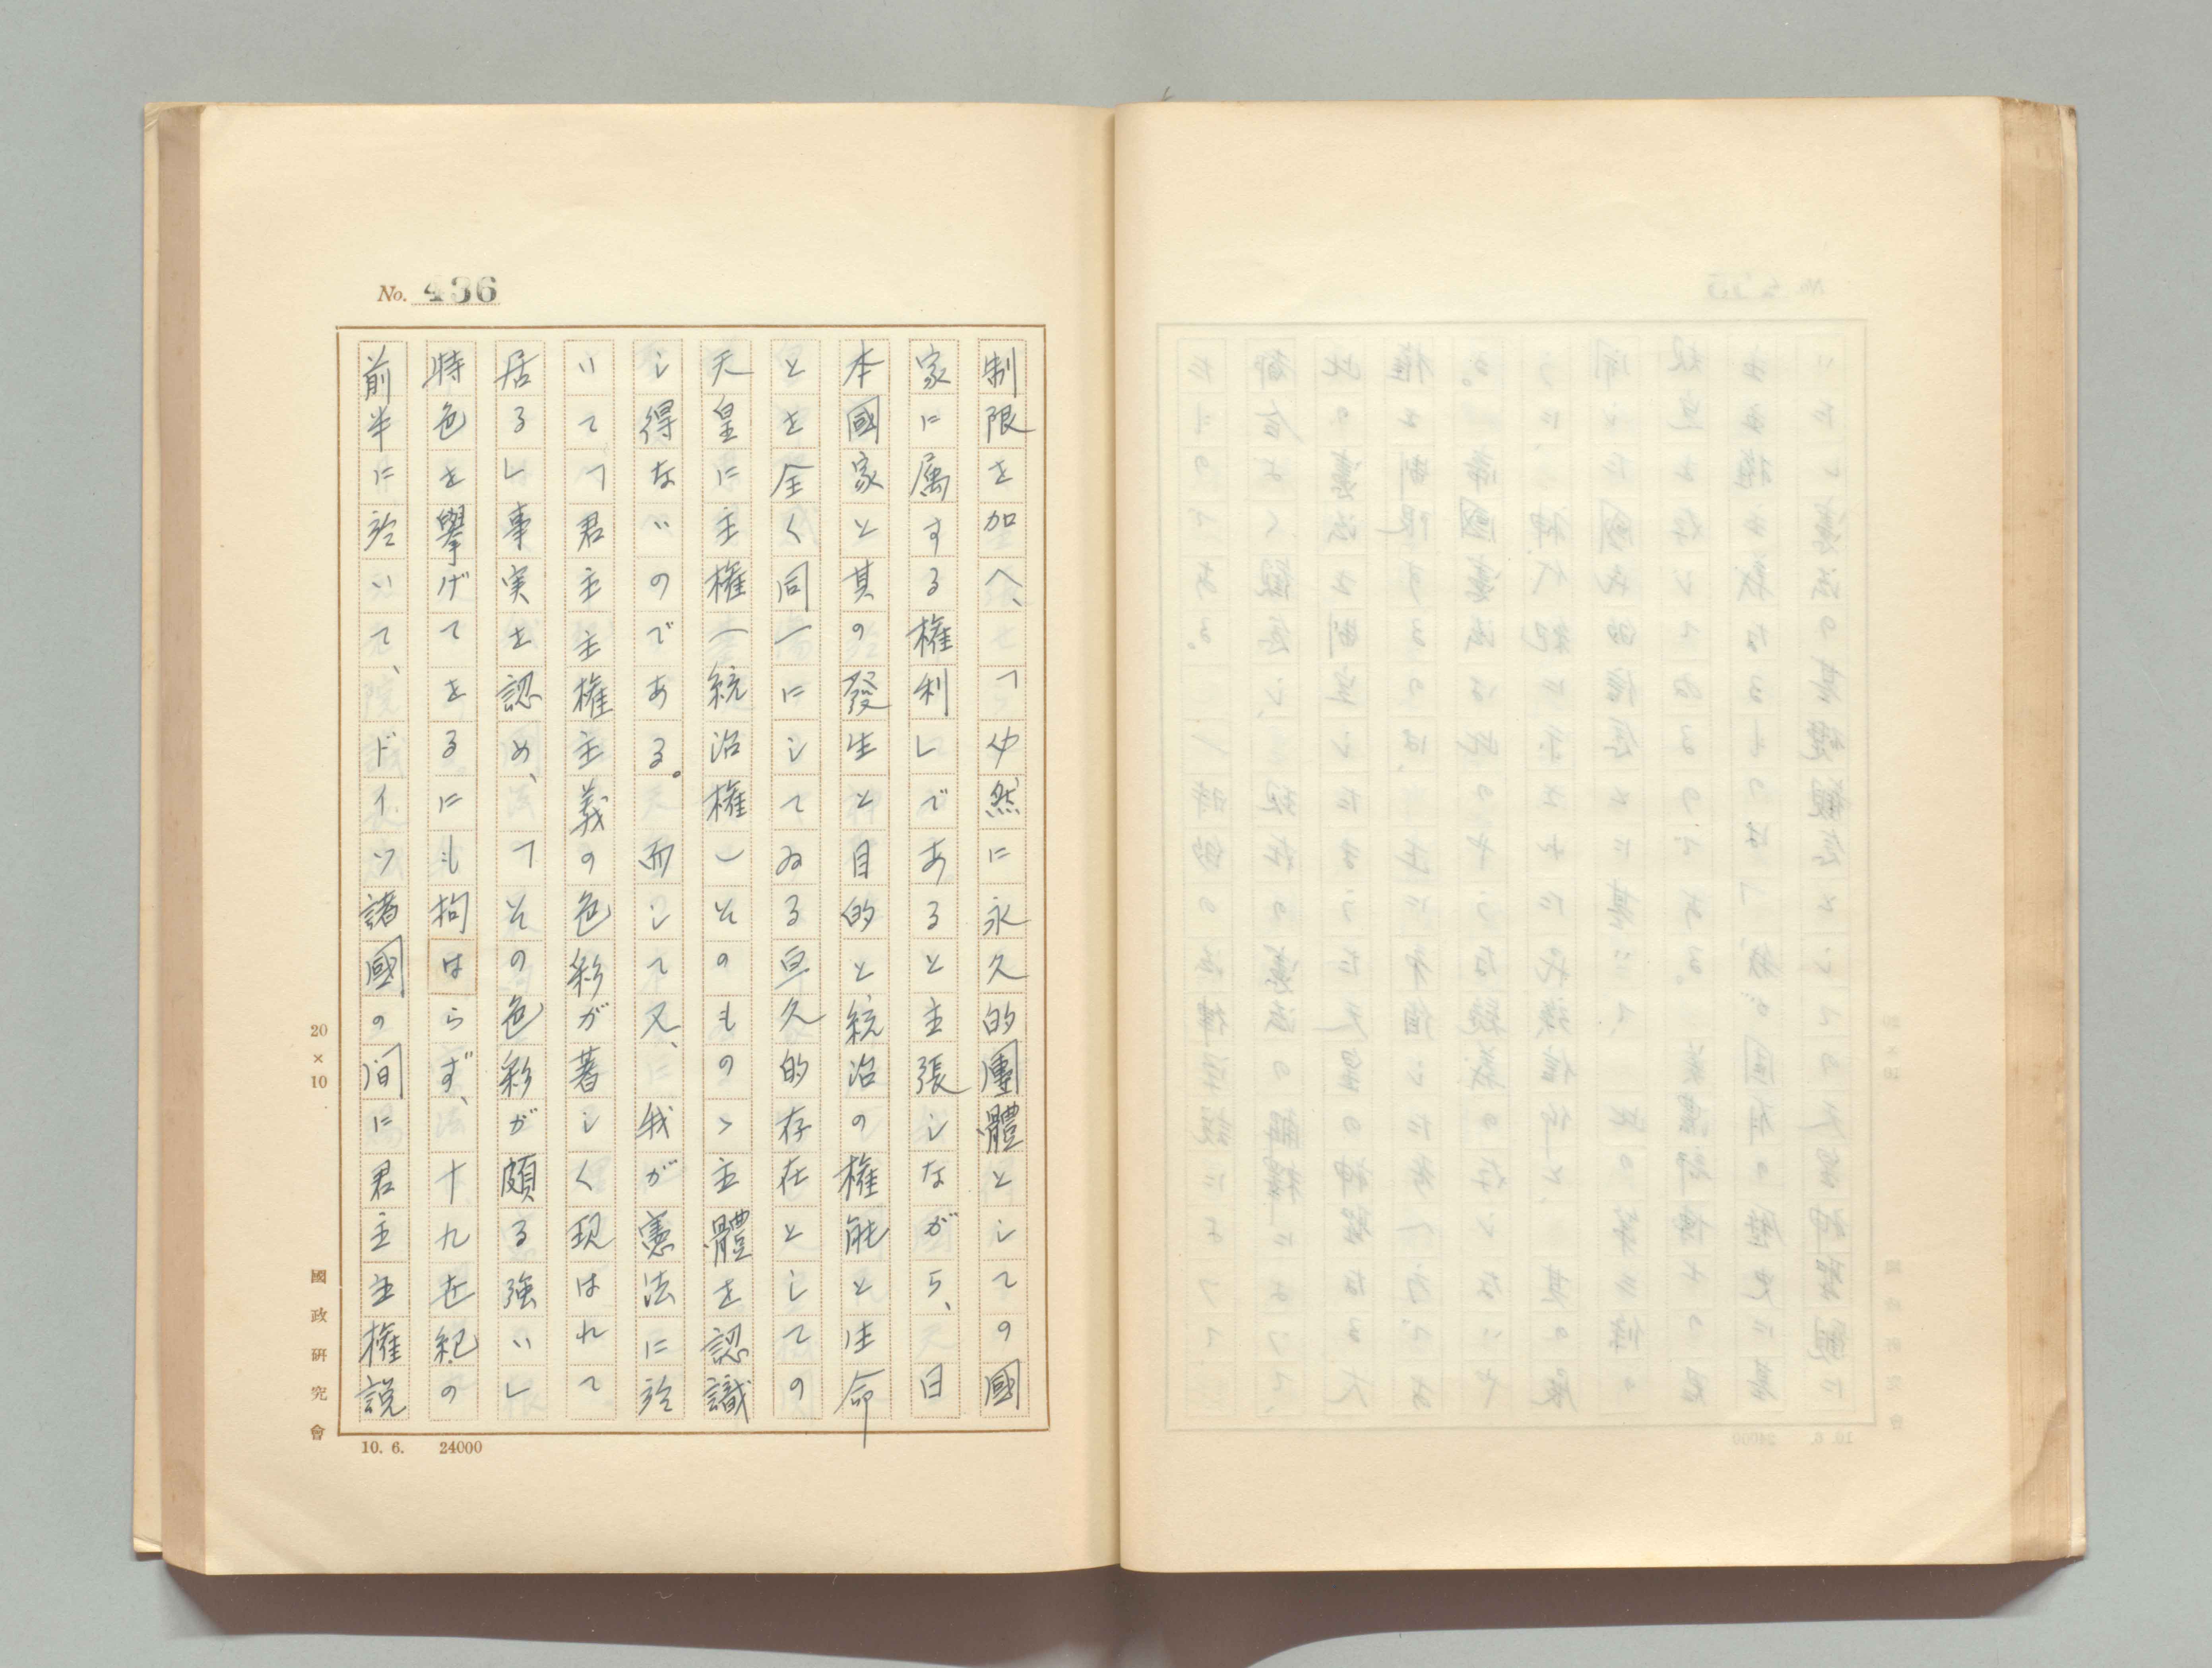 No. 436
制限を加へ、「必然に永久的團體としての國
家に属する権利」であると主張しながら、日
本國家と其の發生と目的と統治の権能と生命
とを全く同一にしてゐる皇久的存在としての
天皇に主権(統治権)そのものゝ主體を認識
し得ないのである。而して又、我が憲法に於
いて「君主主権主義の色彩が著しく現はれて
居る」事実を認め、「その色彩が頗る強い」
特色を擧げてをるにも拘はらず、十九世紀の
前半に於いて、ドイツ諸國の间に君主主権説
20×10
國政研究會
10. 6. 24000